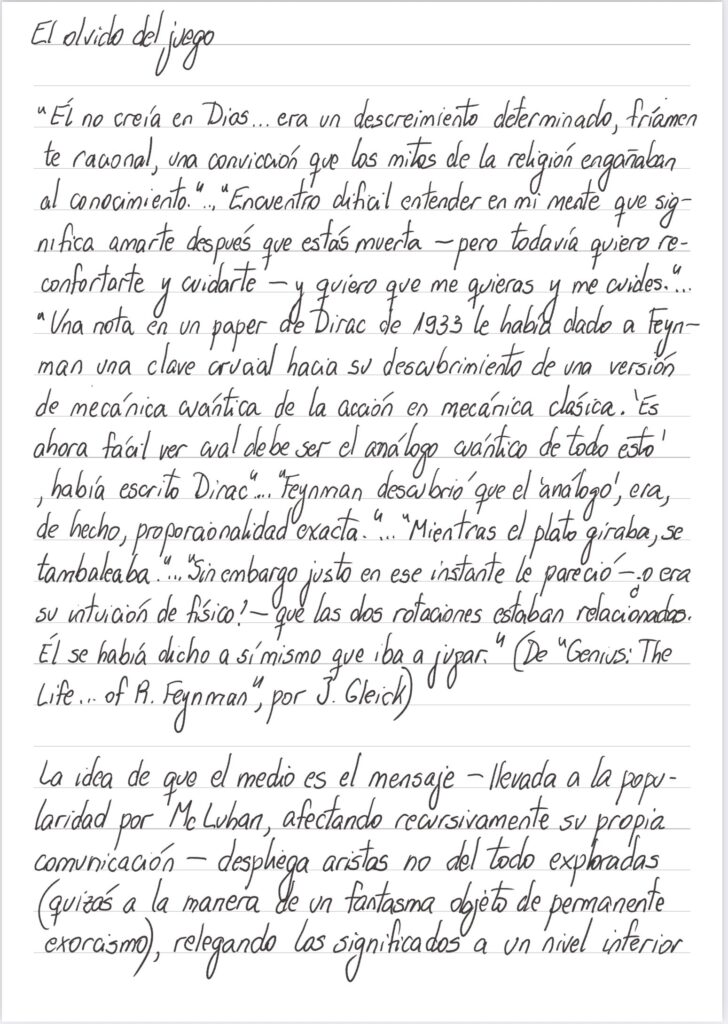 El olvido del juego
"Él no creía en Dios... era un descreimiento determinado, fríamen
te racional, una convicción que los mitos de la religión engañaban
al conocimiento."..."Encuentro difícil entender en mi mente que sig-
nifica amarte después que estás muerta – pero todavía quiero re-
confortarte y cuidarte – y quiero que me quieras y me cuides."...
"Una nota en un paper de Dirac de 1933 le había dado a Feyn-
man una clave crucial hacia su descubrimiento de una versión
de mecánica cuántica de la acción en mecánica clásica. 'Es
ahora fácil ver cual debe ser el análogo cuántico de todo esto'
, había escrito Dirac"..."Feynman descubrió que el 'análogo', era,
de hecho, proporcionalidad exacta."..."Mientras el plato giraba, se
tambaleaba."..."Sin embargo justo en ese instante le pareció –¿o era
su intuición de físico? – que las dos rotaciones estaban relacionadas.
Él se había dicho a sí mismo que iba a jugar." (De "Genius: The
Life... of R. Feynman", por J. Gleick)
La idea de que el medio es el mensaje – llevada a la popu-
laridad por Mc Luhan, afectando recursivamente su propia
comunicación – despliega aristas no del todo exploradas
(quizás a la manera de un fantasma objeto de permanente
exorcismo), relegando los significados a un nivel inferior